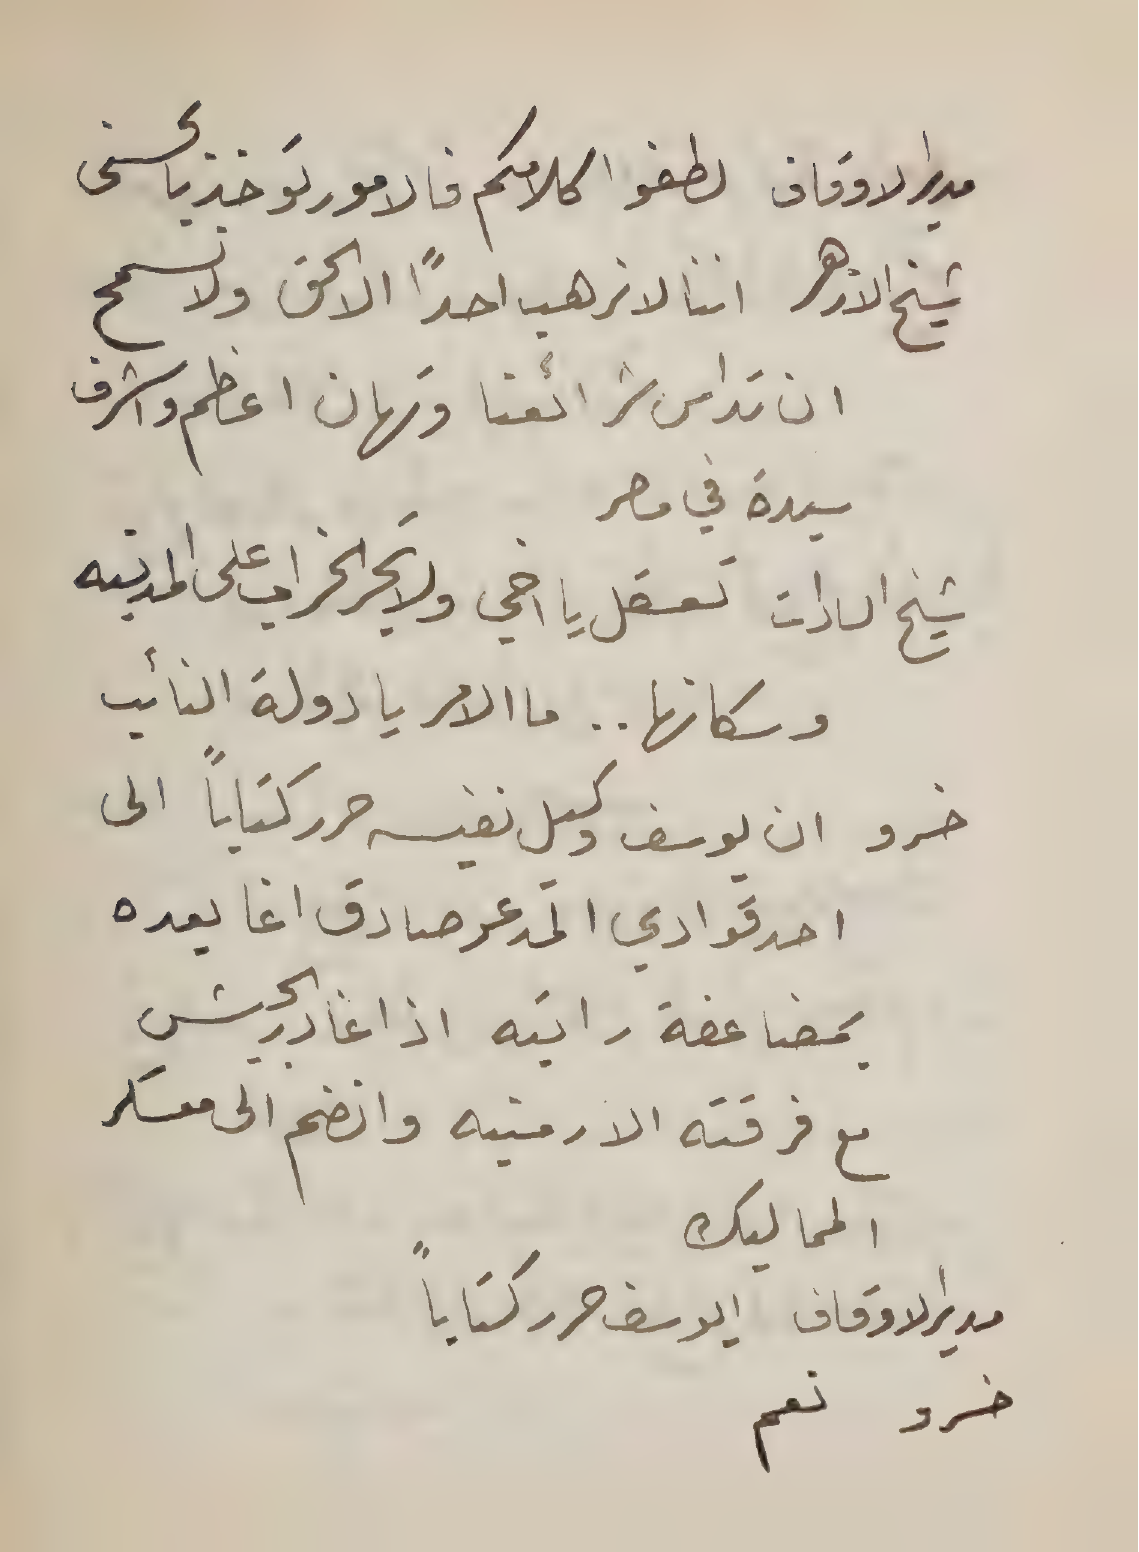 مدير الاوقاف لطفوا كلامكم فالامور تؤخذ بالحسنى
شيخ الازهر اننا لا نرهب احداً الا الحق ولا نسمح
ان تداس شرائعنا وتهان اعظم واشرف
سيدة في مصر
شيخ السادات تعقل يا اخي ولا تجر الخراب على المدينه
وسكانها .. ما الامر يا دولة النائب
خسرو ان يوسف وكيل نفيسه حرر كتاباً الى
احد قوادي المدعو صادق اغا يعده
بمضاعفة راتبه اذا غادر الجيش
مع فرقته الارمنيه وانضم الى معسكر
المماليك
مدير الاوقاف ايوسف حرر كتاباً
خسرو نعم